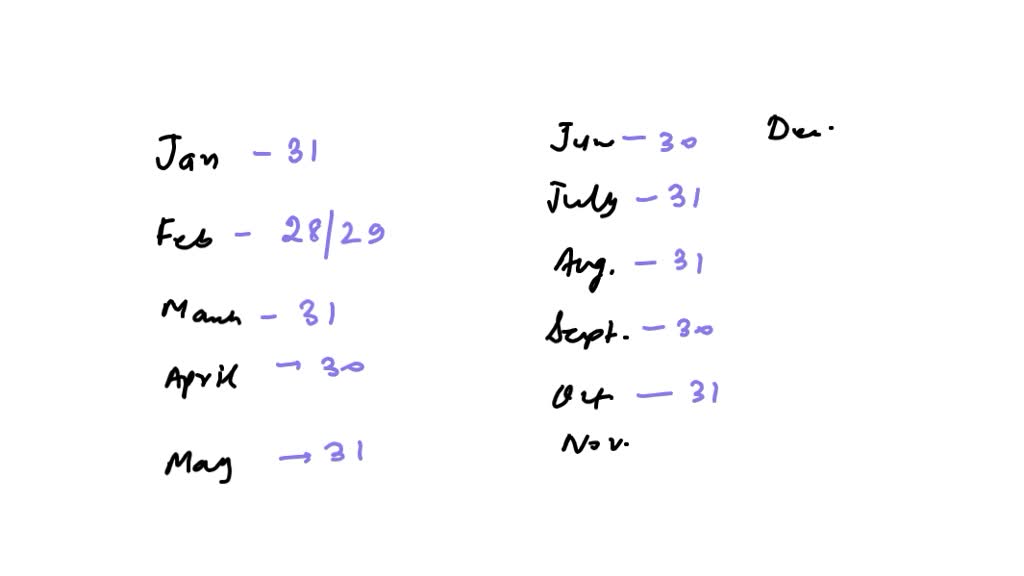 Jan - 31
Feb - 28/29
March - 31
April → 30
May → 31
Jun - 30
July - 31
Aug. - 31
Sept. - 30
Oct - 31
Nov.
Dec.